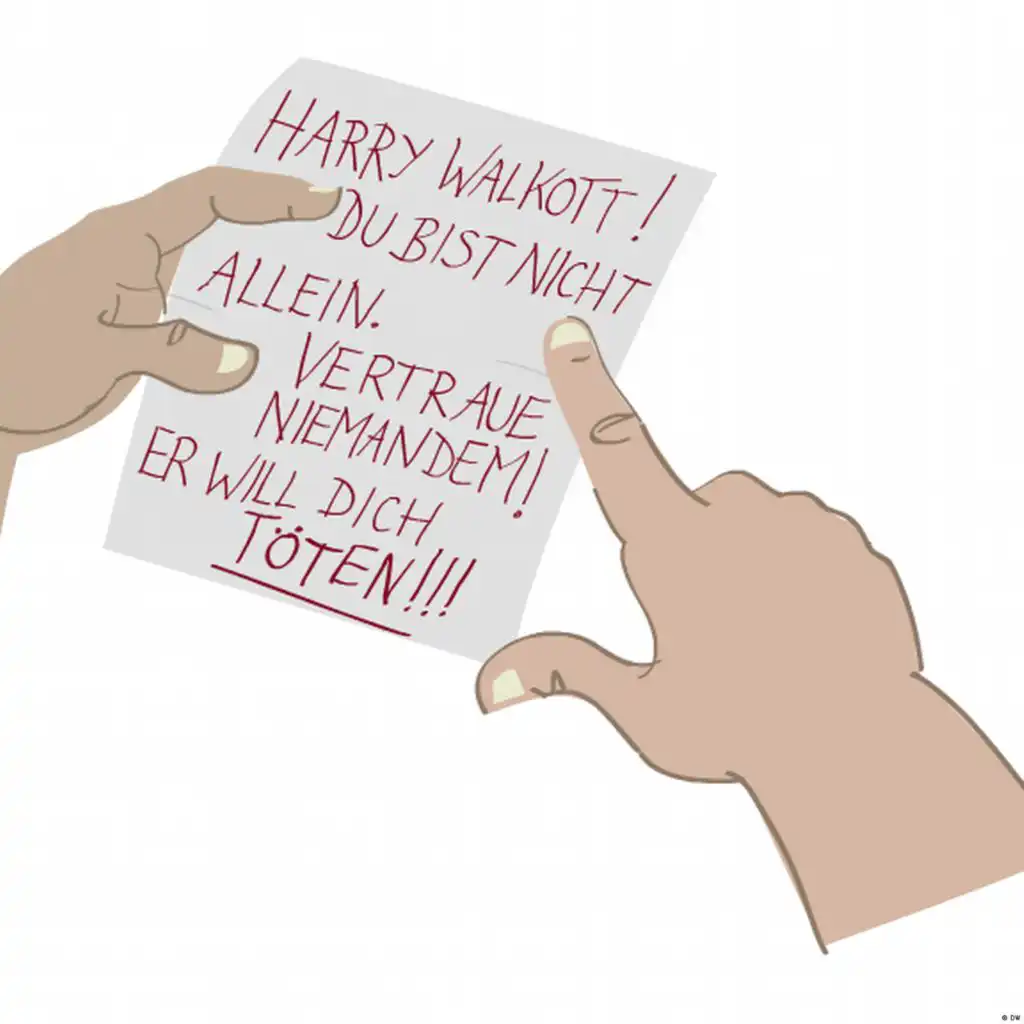 HARRY WALKOTT!
DU BIST NICHT
ALLEIN.
VERTRAUE
NIEMANDEM!
ER WILL DICH
TÖTEN!!!
© DW